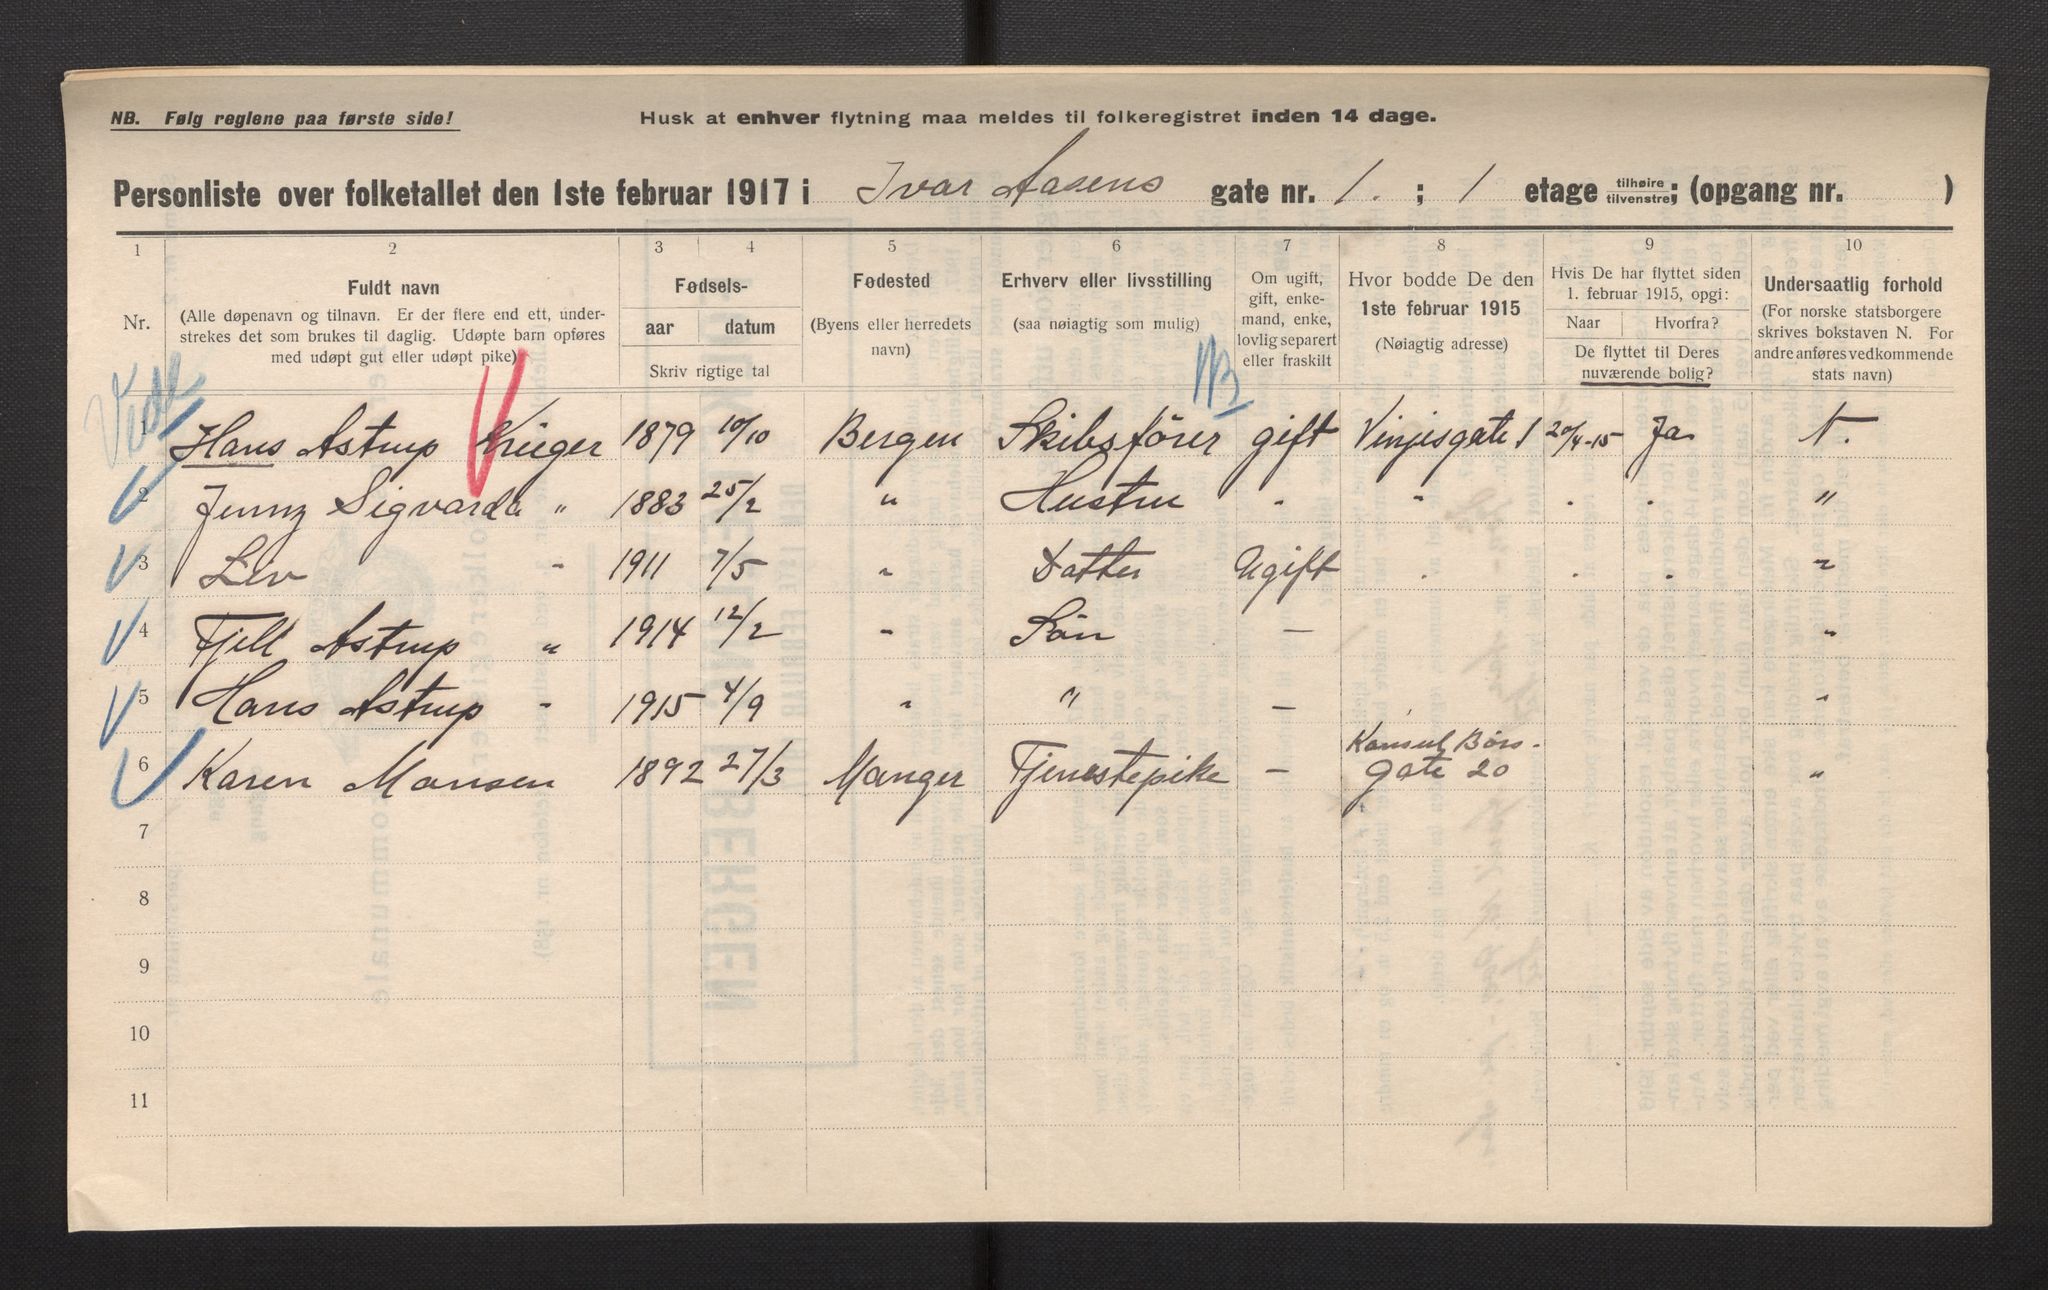 NB. Følg reglene paa første side!
Husk at enhver flytning maa meldes til folkeregistret inden 14 dage.
Personliste over folketallet den 1ste februar 1917 i Ivar Aasens gate nr. 1. ; 1 etage tilhøire tilvenstre; (opgang nr. )
1 2 3 4 5 6 7 8 9 10
Nr.
Fuldt navn
(Alle døpenavn og tilnavn. Er der flere end ett, under-
strekes det som brukes til daglig. Udøpte barn opføres
med udøpt gut eller udøpt pike)
Fødsels-
aar datum
Skriv rigtige tal
Fødested
(Byens eller herredets
navn)
Erhverv eller livsstilling
(saa nøiagtig som mulig)
Om ugift,
gift, enke-
mand, enke,
lovlig separert
eller fraskilt
Hvor bodde De den
1ste februar 1915
(Nøiagtig adresse)
Hvis De har flyttet siden
1. februar 1915, opgi:
Naar Hvorfra?
De flyttet til Deres
nuværende bolig?
Undersaatlig forhold
(For norske statsborgere
skrives bokstaven N. For
andre anføres vedkommende
stats navn)
1 Hans Astrup Krüger 1879 10/10 Bergen Skibsfører gift Vinjesgate 1 20/4-15 Ja N.
2 Jenny Sigvarda " 1883 25/2 " Hustru " " " " "
3 Liv " 1911 7/5 " Datter Ugift " " " "
4 Fjell Astrup " 1914 12/2 " Søn — "
5 Hans Astrup " 1915 4/9 " " — "
6 Karen Monsen 1892 27/3 Manger Tjenestepike — Konsul Børs-
gate 20 "
7
8
9
10
11